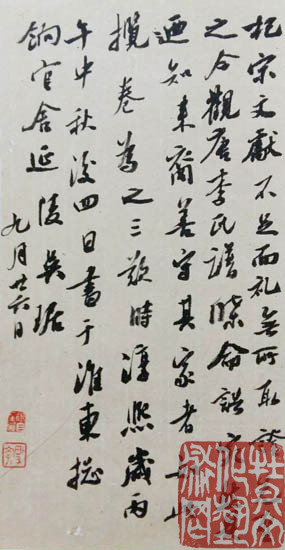 杞宋文獻不足而礼無所取
之今觀唐李氏譜牒命誥
迺知来裔善守其家者如此
攬卷為之三歎時淳熙歲丙
午中秋後四日書于淮東揔
餉官舍延陵吳琚
九月廿六日